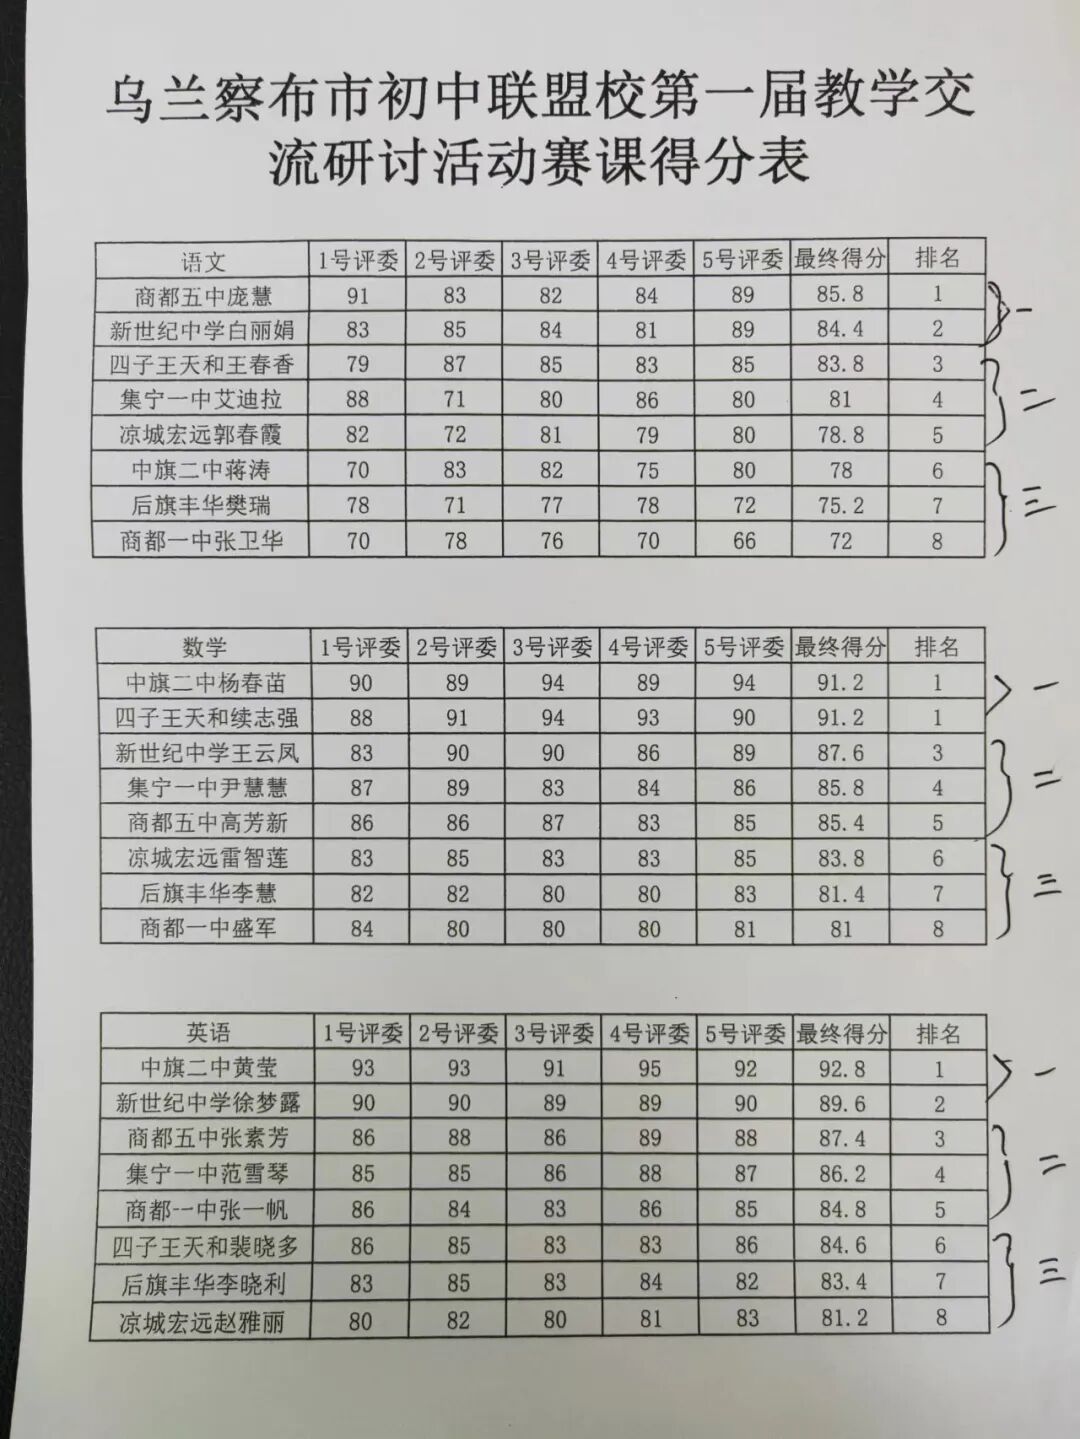 乌兰察布市初中联盟校第一届教学交
流研讨活动赛课得分表
语文 1号评委 2号评委 3号评委 4号评委 5号评委 最终得分 排名
商都五中庞慧 91 83 82 84 89 85.8 1
新世纪中学白丽娟 83 85 84 81 89 84.4 2
一
四子王天和王春香 79 87 85 83 85 83.8 3
集宁一中艾迪拉 88 71 80 86 80 81 4
二
凉城宏远郭春霞 82 72 81 79 80 78.8 5
中旗二中蒋涛 70 83 82 75 80 78 6
后旗丰华樊瑞 78 71 77 78 72 75.2 7
三
商都一中张卫华 70 78 76 70 66 72 8
数学 1号评委 2号评委 3号评委 4号评委 5号评委 最终得分 排名
中旗二中杨春苗 90 89 94 89 94 91.2 1
一
四子王天和续志强 88 91 94 93 90 91.2 1
新世纪中学王云凤 83 90 90 86 89 87.6 3
集宁一中尹慧慧 87 89 83 84 86 85.8 4
二
商都五中高芳新 86 86 87 83 85 85.4 5
凉城宏远雷智莲 83 85 83 83 85 83.8 6
后旗丰华李慧 82 82 80 80 83 81.4 7
三
商都一中盛军 84 80 80 80 81 81 8
英语 1号评委 2号评委 3号评委 4号评委 5号评委 最终得分 排名
中旗二中黄莹 93 93 91 95 92 92.8 1
一
新世纪中学徐梦露 90 90 89 89 90 89.6 2
商都五中张素芳 86 88 86 89 88 87.4 3
集宁一中范雪琴 85 85 86 88 87 86.2 4
二
商都一中张一帆 86 84 83 86 85 84.8 5
四子王天和裴晓多 86 85 83 83 86 84.6 6
后旗丰华李晓利 83 85 83 84 82 83.4 7
三
凉城宏远赵雅丽 80 82 80 81 83 81.2 8